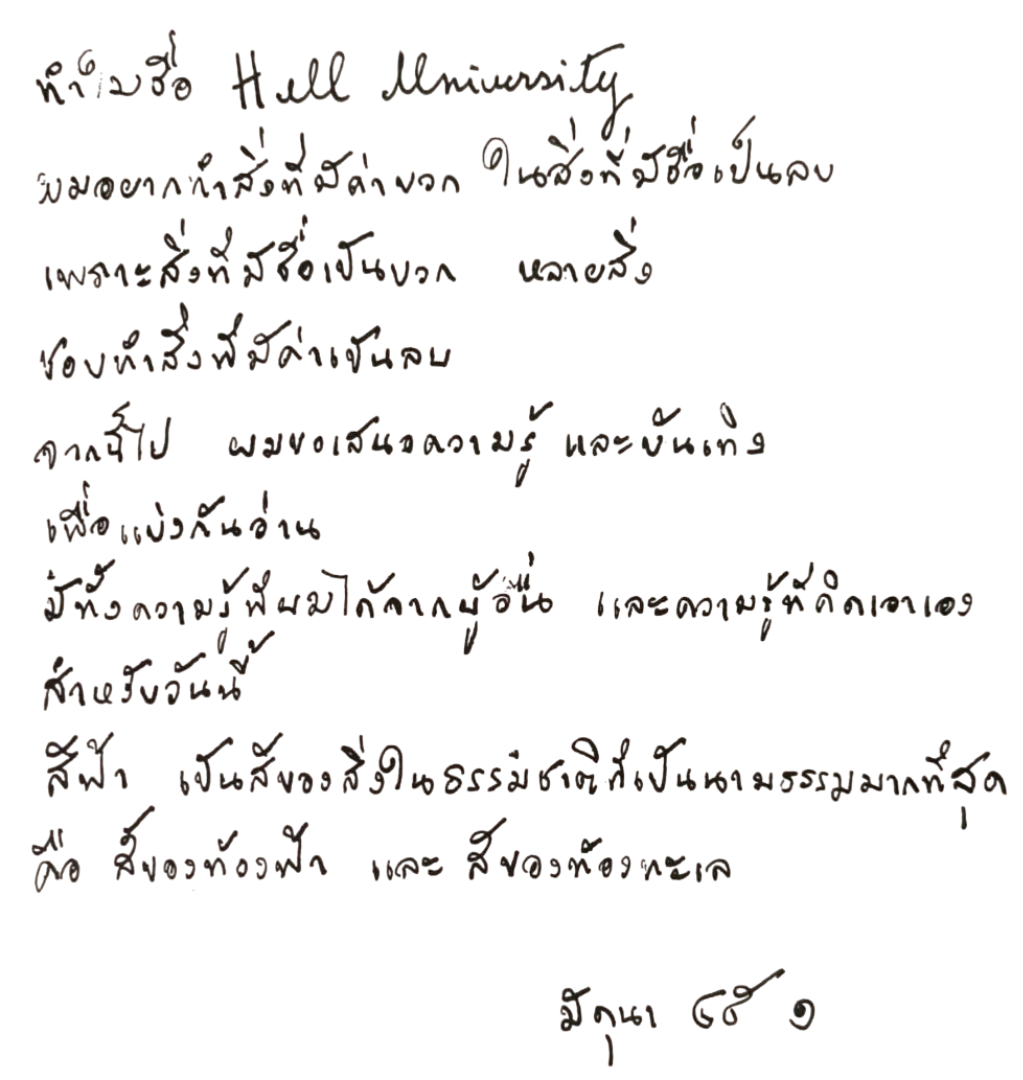 ทำไมชื่อ Hell University
ผมอยากทำสิ่งที่มีค่าบวก ในสิ่งที่มีชื่อเป็นลบ
เพราะสิ่งที่มีชื่อเป็นบวก หลายสิ่ง
ชอบทำสิ่งที่มีค่าเป็นลบ
จากนี้ไป ผมขอเสนอความรู้ และบันเทิง
เพื่อแบ่งกันอ่าน
มีทั้งความรู้ที่ผมได้จากผู้อื่น และความรู้ที่คิดเอาเอง
สำหรับวันนี้
สีฟ้า เป็นสีของสิ่งในธรรมชาติที่เป็นนามธรรมมากที่สุด
คือ สีของท้องฟ้า และ สีของท้องทะเล
มิถุนา ๔๕ ๑